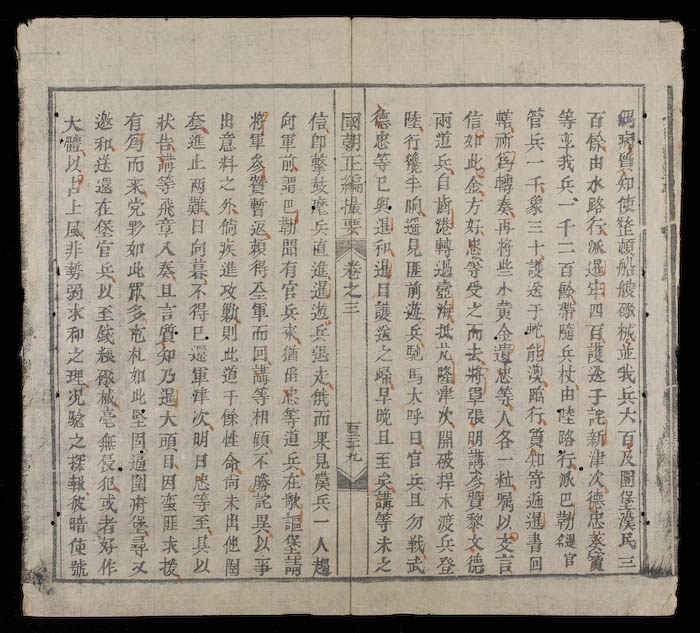 偶病質知使整頓船艘礮械並我兵六百及圍堡漢民三
百餘由水路行派暹牢四百護送于詫新津次德忠蒸寶
等率我兵一千二百餘帶隨兵杖由陸路行派巴勒暹官
管兵一千象三十護送于蛇能澳臨行質知寄遞暹書回
轄兩爲轉奏再將些小黃金遺忠等人各一枇嘱以女言
信如此金方好忠等受之而去將軍張明講參贊黎文德
兩道兵自齒港轉過壺海抵芃隆津次開破捍木渡兵登
陸行纔半晌遥見匪前遊兵馳馬大呼曰官兵且勿戰武
德忠等已與暹和暹日護送之歸早晚且至矣講等未之
國朝正編撮要 卷之三 百三十九
信即擊鼓麾兵直進暹遊兵退走俄而果見漢兵一人趨
向軍前謂巴勒聞有官兵來猶留忠等道兵在歌謳堡請
將軍參贊暫返賴得全軍而回講等相顧不勝詫異以事
出意料之外倘疾進攻勦則此道千餘性命尚未出他圈
套進止兩難日向暮不得已還軍津次明日忠等至具以
狀告講等飛章入奏且言質知乃暹大頭目因蛮匪求援
有爲而来党夥如此眾多屯札如此堅固逼圍府堡尋又
邀和送還在堡官兵以至錢粮礮械毫無侵犯或者好作
大體以占上風非勢弱求和之理况驗之探報彼暗使號